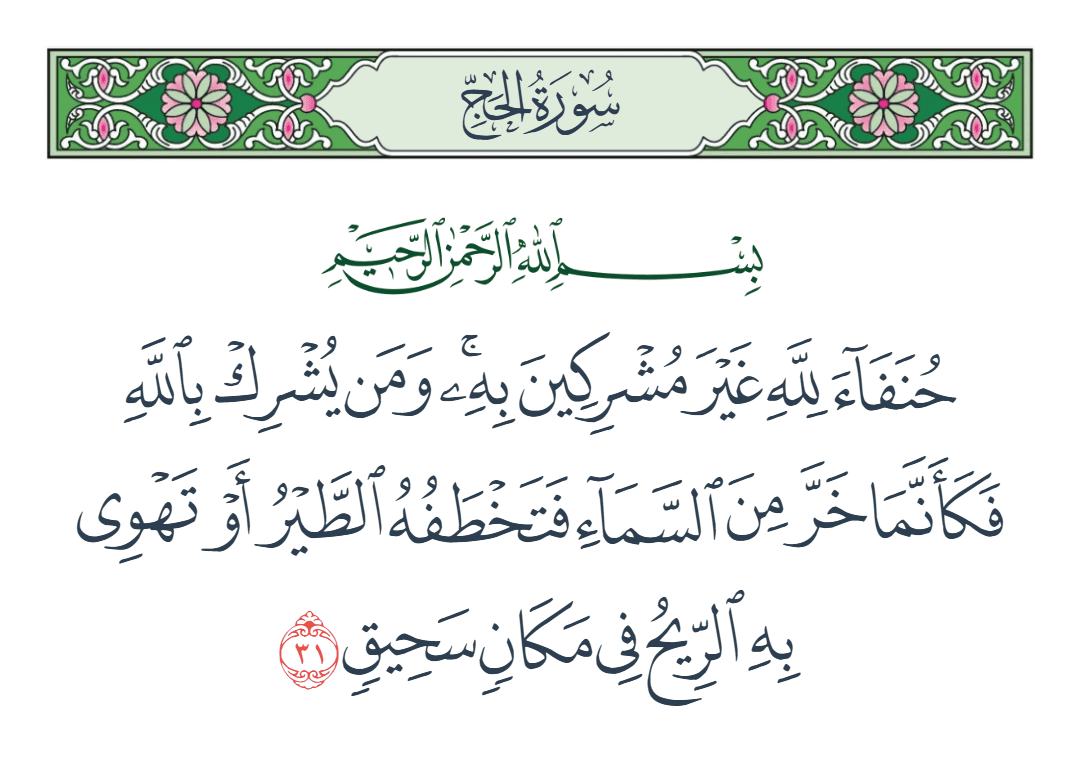 سُورَةُ الحَجِّ
بِسْمِ ٱللَّهِ ٱلرَّحْمَٰنِ ٱلرَّحِيمِ
حُنَفَآءَ لِلَّهِ غَيْرَ مُشْرِكِينَ بِهِۦۚ وَمَن يُشْرِكْ بِٱللَّهِ
فَكَأَنَّمَا خَرَّ مِنَ ٱلسَّمَآءِ فَتَخْطَفُهُ ٱلطَّيْرُ أَوْ تَهْوِى
بِهِ ٱلرِّيحُ فِى مَكَانٍ سَحِيقٍ ٣١